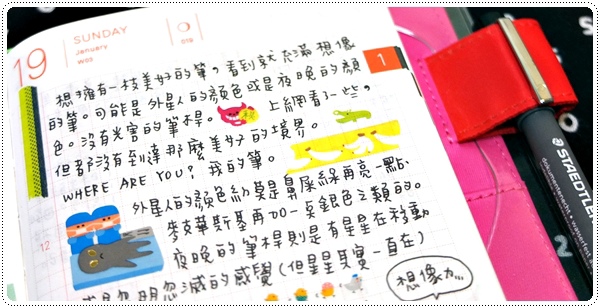 19
SUNDAY
January
W03
019
1
想擁有一枝美好的筆，看到就充滿想像
的筆。可能是外星人的顏色或是夜晚的顏
色。沒有光害的筆桿。上網看了一些，
但都沒有到達那麼美好的境界。
WHERE ARE YOU? 我的筆。
外星人的顏色約莫是鼻屎綠再亮一點
麥克華斯基再加一長銀色之類的。
夜晚的筆桿則是有星星在移動
或是忽明忽滅的感覺（但星星其實一直在）
想像力...
12
STAEDTLER
dokumentenecht • wasserfest